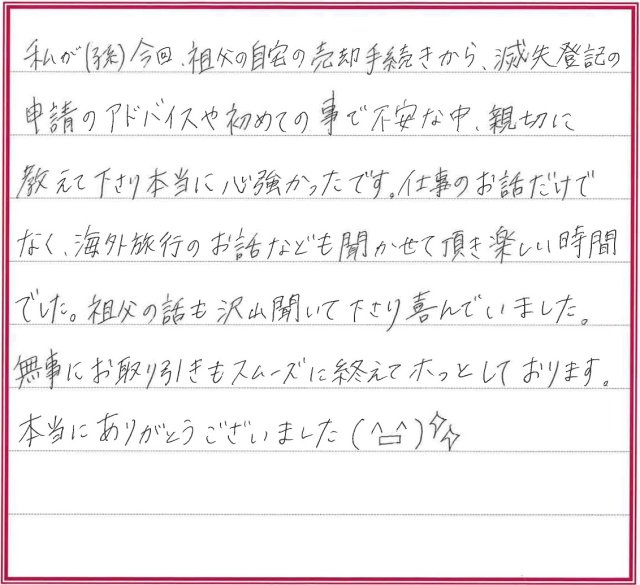 私が(孫)今回、祖父の自宅の売却手続きから、滅失登記の
申請のアドバイスや初めての事で不安な中、親切に
教えて下さり本当に心強かったです。仕事のお話だけで
なく、海外旅行のお話なども聞かせて頂き楽しい時間
でした。祖父の話も沢山聞いて下さり喜んでいました。
無事にお取り引きもスムーズに終えてホっとしております。
本当にありがとうございました(^ロ^)